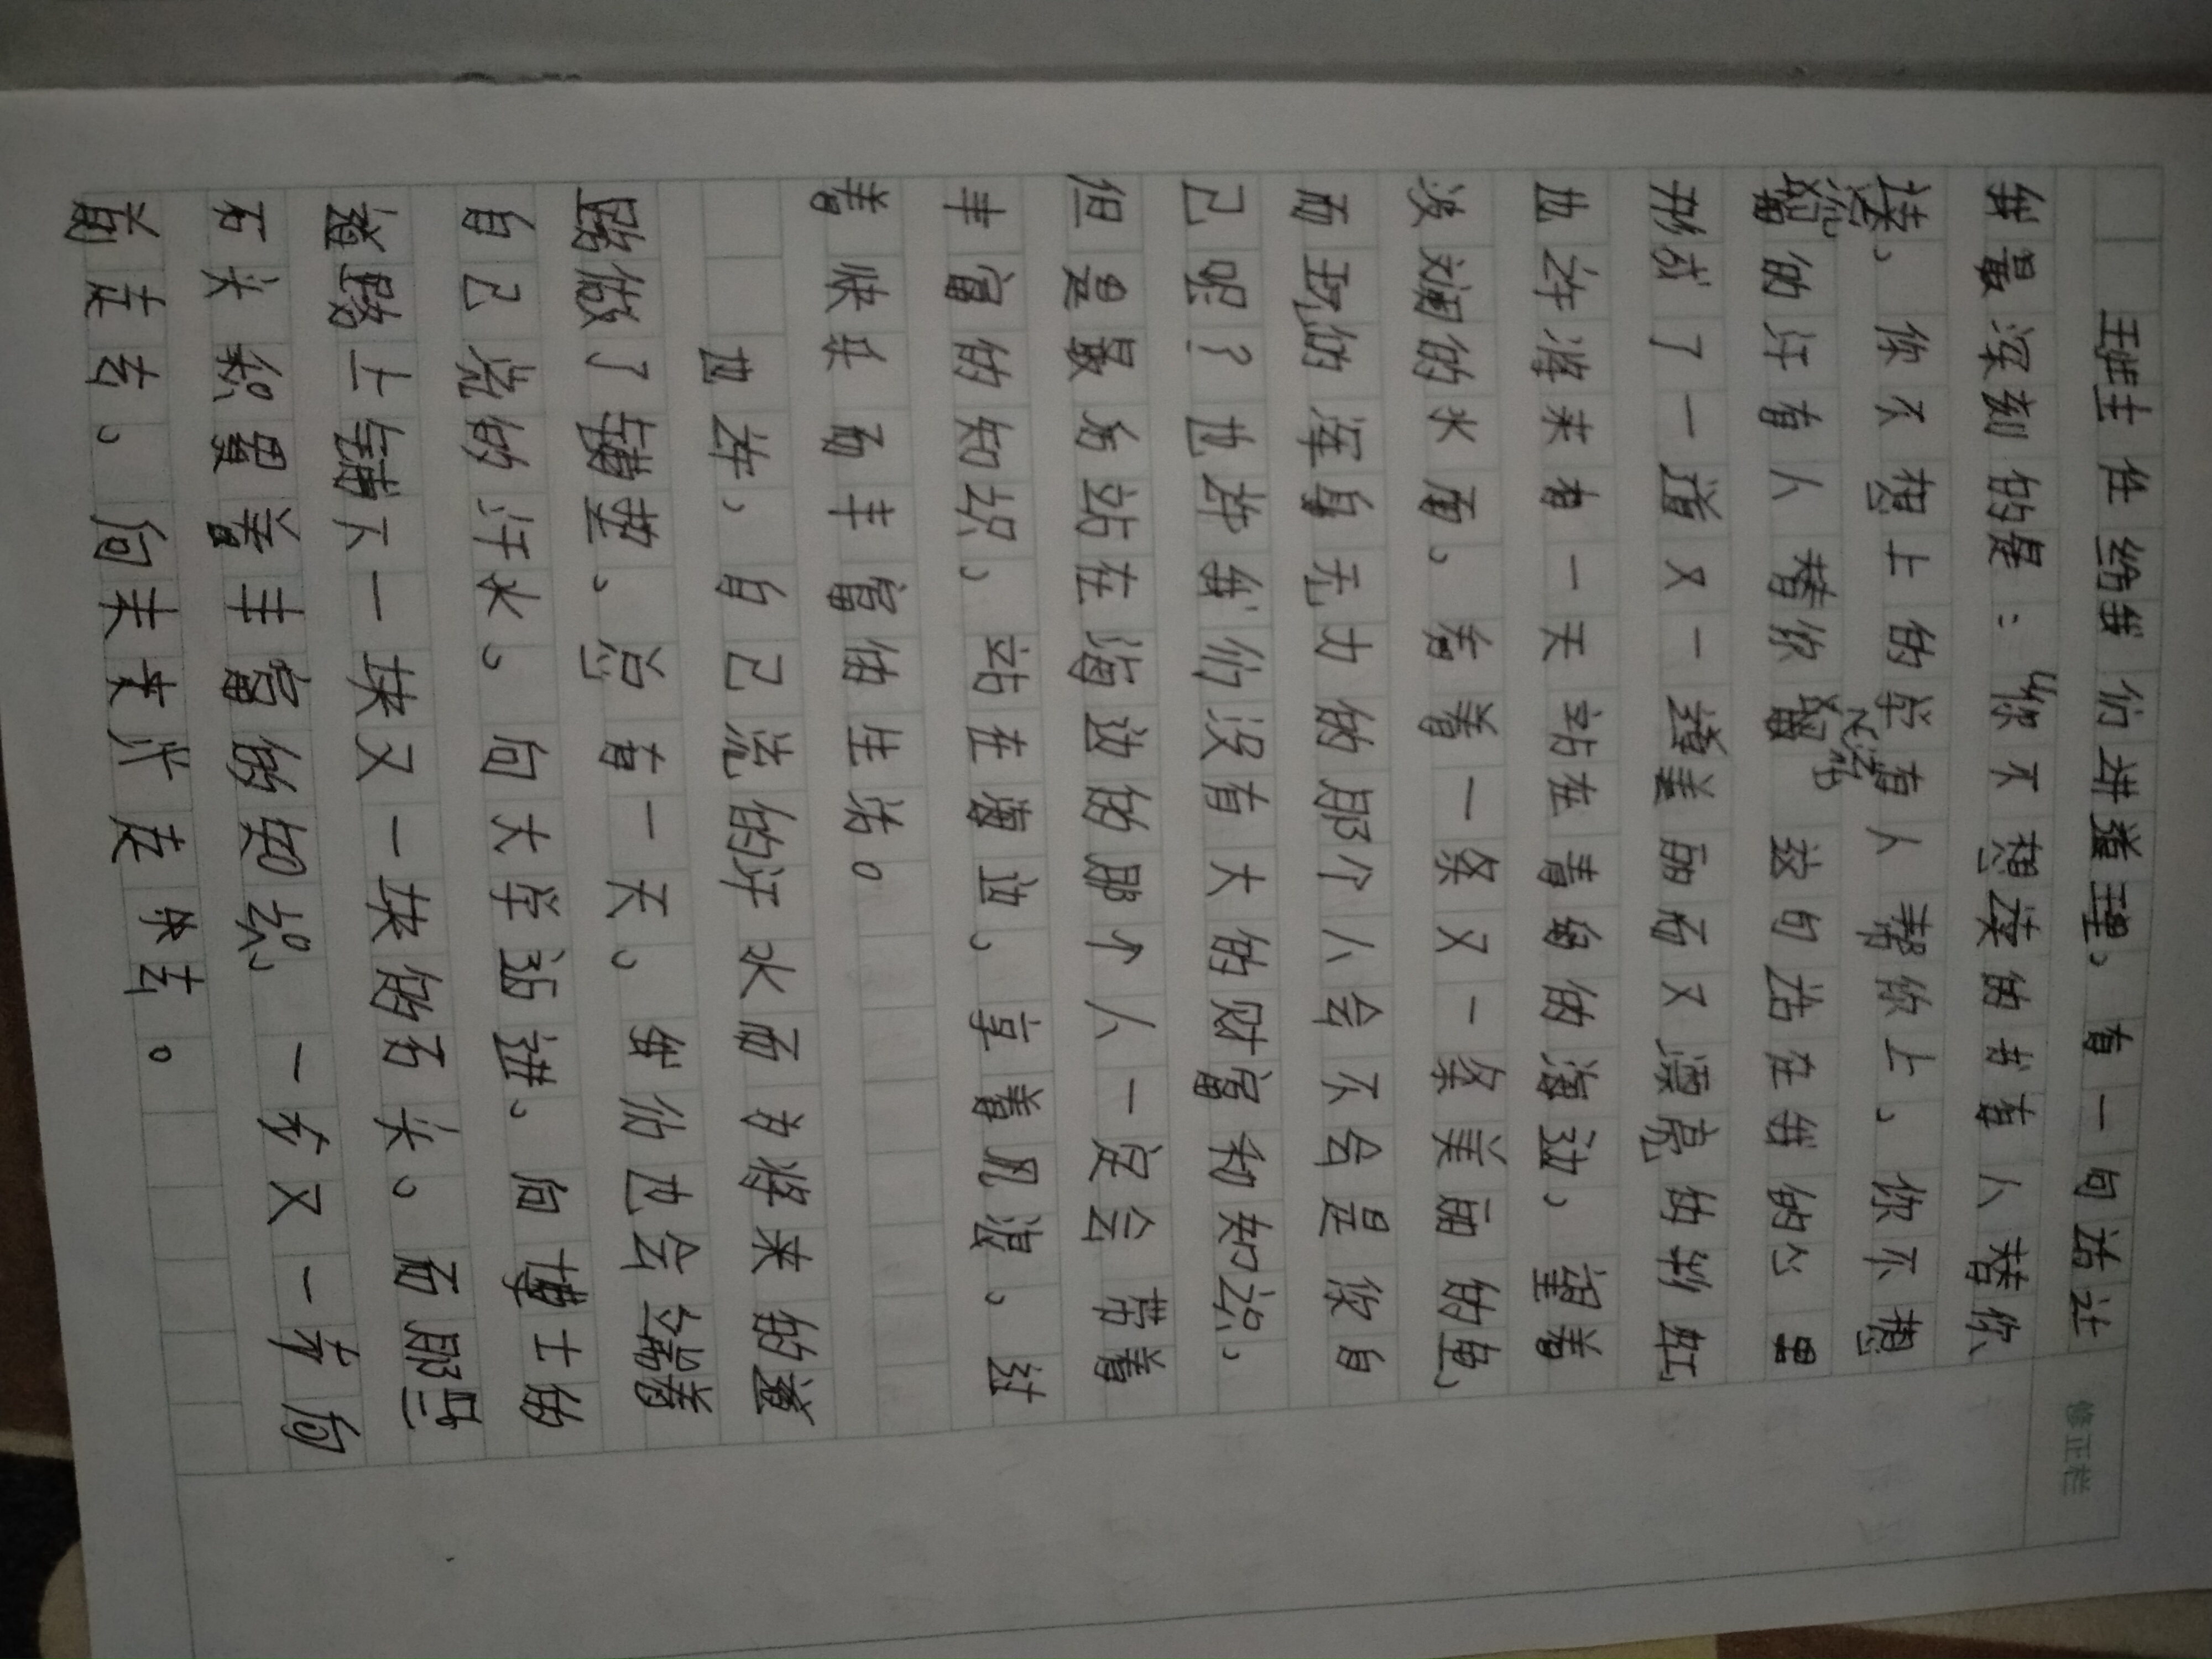 班主任给我们讲道理。有一句话让
修正栏
我最深刻的是：“你不想读的书有人替你
读、你不想上的学有人帮你上、你不想
流的汗有人替你流”这句话在我的心里
形成了一道又一道美丽而又漂亮的彩虹
也许将来有一天站在青绿的海边、望着
波澜的水面。看着一条又一条美丽的鱼、
而现在的浑身无力的那个人会不会是你自
己呢？也许我们没有大的财富和知识、
但是最后站在海边的那个人一定会带着
丰富的知识、站在海边、享着风浪。过
着快乐而丰富的生活。
也许、自己流的汗水而为将来的道
路做了铺垫、总有一天。我们也会踏着
自己流的汗水。向大学迈进。向博士的
道路上铺下一块又一块的石头。而那些
石头积累着丰富的知识、一步又一步向
前走去。向未来汁走来去。